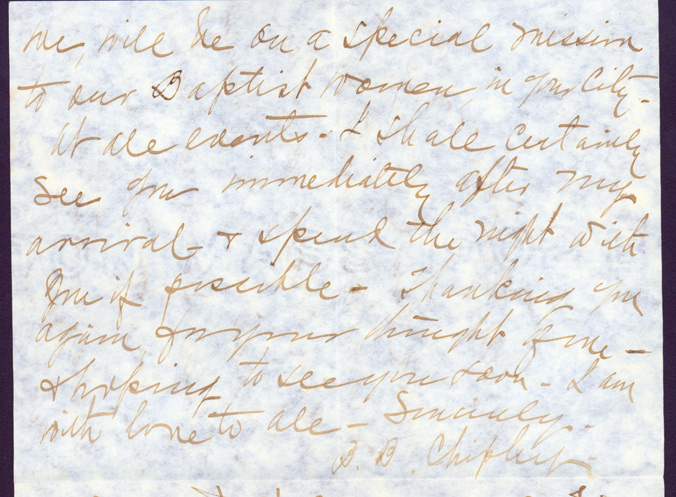 me, will be on a special mission
to our Baptist women, in your City -
At all events - I shall certainly
see you immediately after my
arrival - & spend the night with
you if possible - Thanking you
again for your thought of me -
& hoping to see you soon - I am
with love to all - Sincerely -
B. B. Chipley -